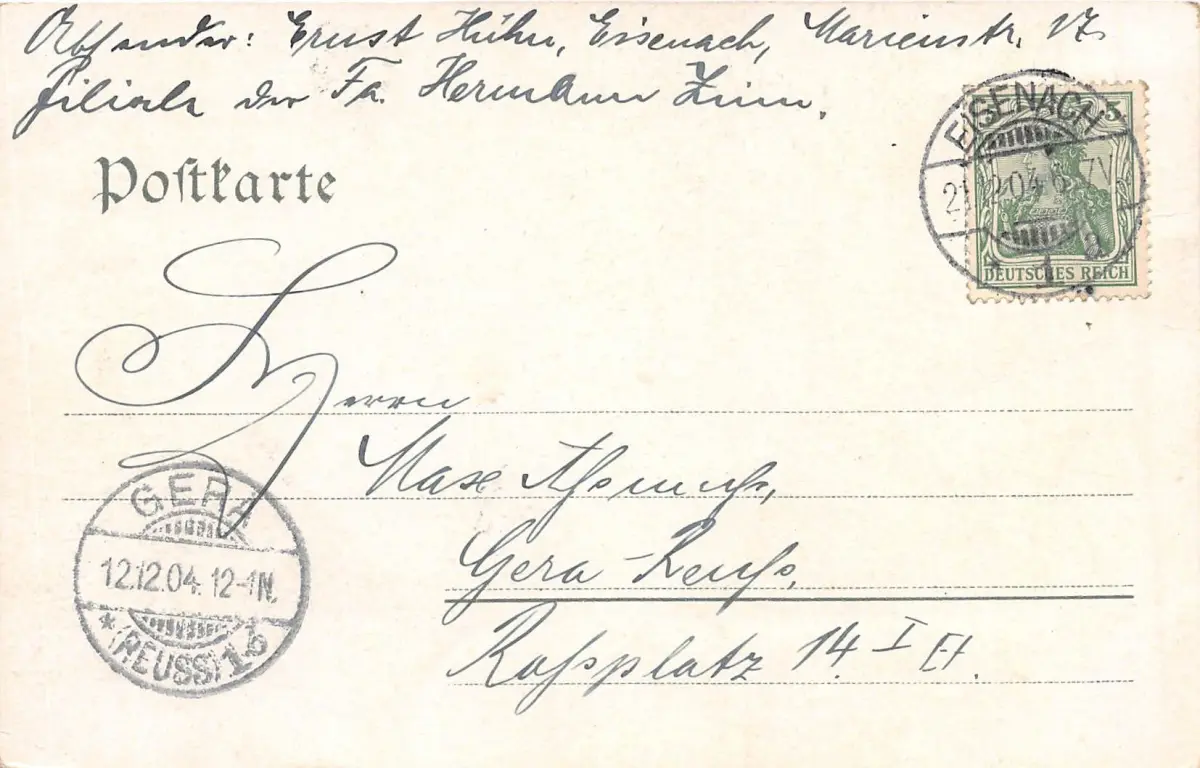 Absender: Ernst Hühn, Eisenach, Marienstr. 17.
Filiale der Fa. Hermann Zinn.
Postkarte
EISENACH
12.04. 6-7V.
1 a
5
DEUTSCHES REICH
Herrn
Max
Gera-Reuß,
Roßplatz 14 I Et.
GERA
12.12.04. 12-1N.
* (REUSS) 1 b